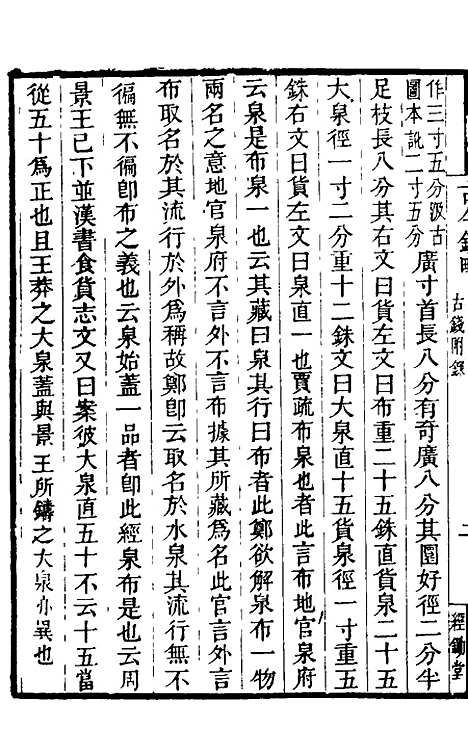 古今錢略
古錢附錄
二
經鋤堂
作三寸五分汲古
圖本訛二寸五分
廣寸首長八分有奇廣八分其圜好徑二分半
足枝長八分其右文曰貨左文曰布重二十五銖直貨泉二十五
大泉徑一寸二分重十二銖文曰大泉直十五貨泉徑一寸重五
銖右文曰貨左文曰泉直一也賈疏布泉也者此言布地官泉府
云泉是布泉一也云其藏曰泉其行曰布者此鄭欲解泉布一物
兩名之意地官泉府不言外不言布據其所藏為名此官言外言
布取名於其流行於外為稱故鄭卽云取名於水泉其流行無不
徧無不徧卽布之義也云泉始蓋一品者卽此經泉布是也云周
景王已下並漢書食貨志文又曰案彼大泉直五十不云十五當
從五十為正也且王莽之大泉蓋與景王所鑄之大泉亦異也